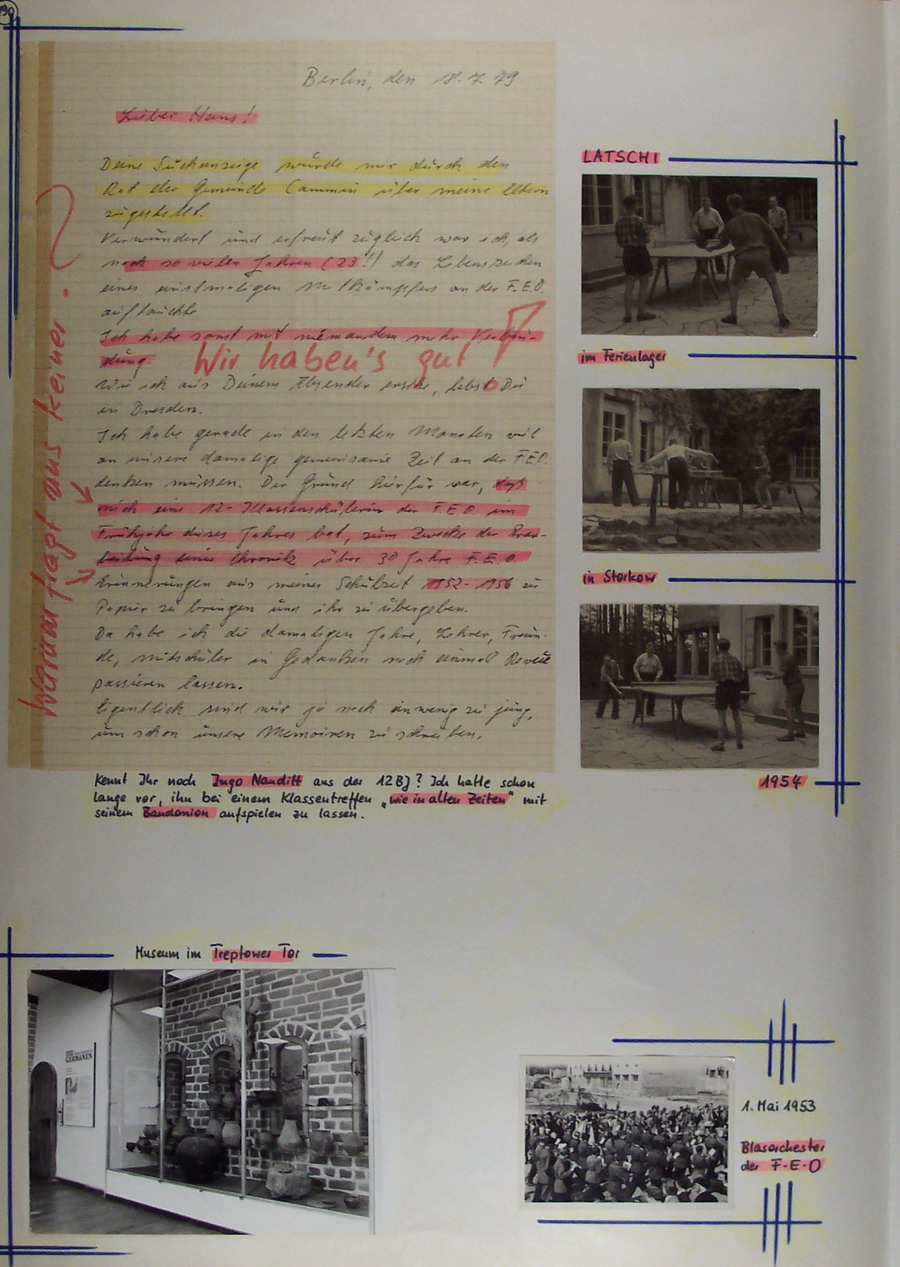 Berlin, den 18.7.79
Lieber Hans!
Deine Suchanzeige wurde mir durch den
Rat der Gemeinde Cammin über meine Eltern
zugestellt.
Verwundert und erfreut zugleich war ich, als
nach so vielen Jahren (23!!) das Lebenszeichen
eines einstmaligen Mitkämpfers an der F.E.O.
auftauchte.
Ich habe sonst mit niemandem mehr Verbin-
dung.
Wir haben's gut
Wie ich aus Deinem Absender ersehe, lebst Du
in Dresden.
Ich habe gerade in den letzten Monaten viel
an unsere damalige gemeinsame Zeit an der F.E.O.
denken müssen. Der Grund hierfür war, daß
mich eine 12-Klassenschülerin der F.E.O. im
Frühjahr dieses Jahres bat, zum Zwecke der Erar-
beitung einer Chronik über 30 Jahre F.E.O.
Erinnerungen aus meiner Schulzeit 1952-1956 zu
Papier zu bringen und ihr zu übergeben.
Da habe ich die damaligen Jahre, Lehrer, Freun-
de, Mitschüler in Gedanken noch einmal Revue
passieren lassen.
Eigentlich sind wir ja noch ein wenig zu jung,
um schon unsere Memoiren zu schreiben.
Warum fragt uns keiner?
Kennt Ihr noch Ingo Nanditt aus der 12BJ? Ich hatte schon
lange vor, ihn bei einem Klassentreffen „wie in alten Zeiten" mit
seinem Bandonion aufspielen zu lassen.
LATSCHI
im Ferienlager
in Storkow
1954
Museum im Treptower Tor
GERMANEN
1. Mai 1953
Blasorchester
der F-E-O